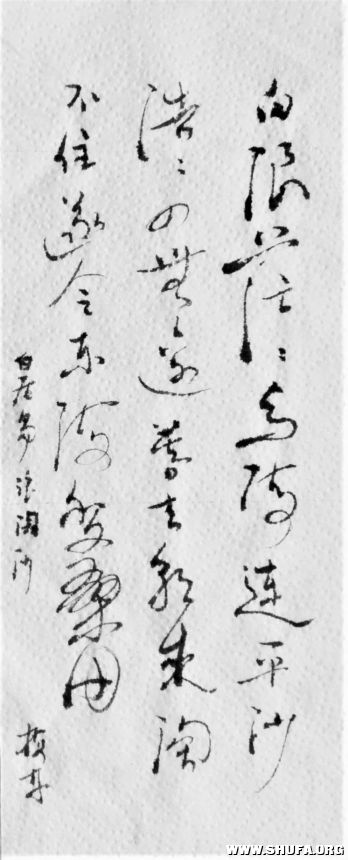 白浪茫〻与海連平沙
浩〻四無邊暮去朝来淘
不住遂令東海變桑田
白居易浪淘沙
WWW.SHUFA.ORG